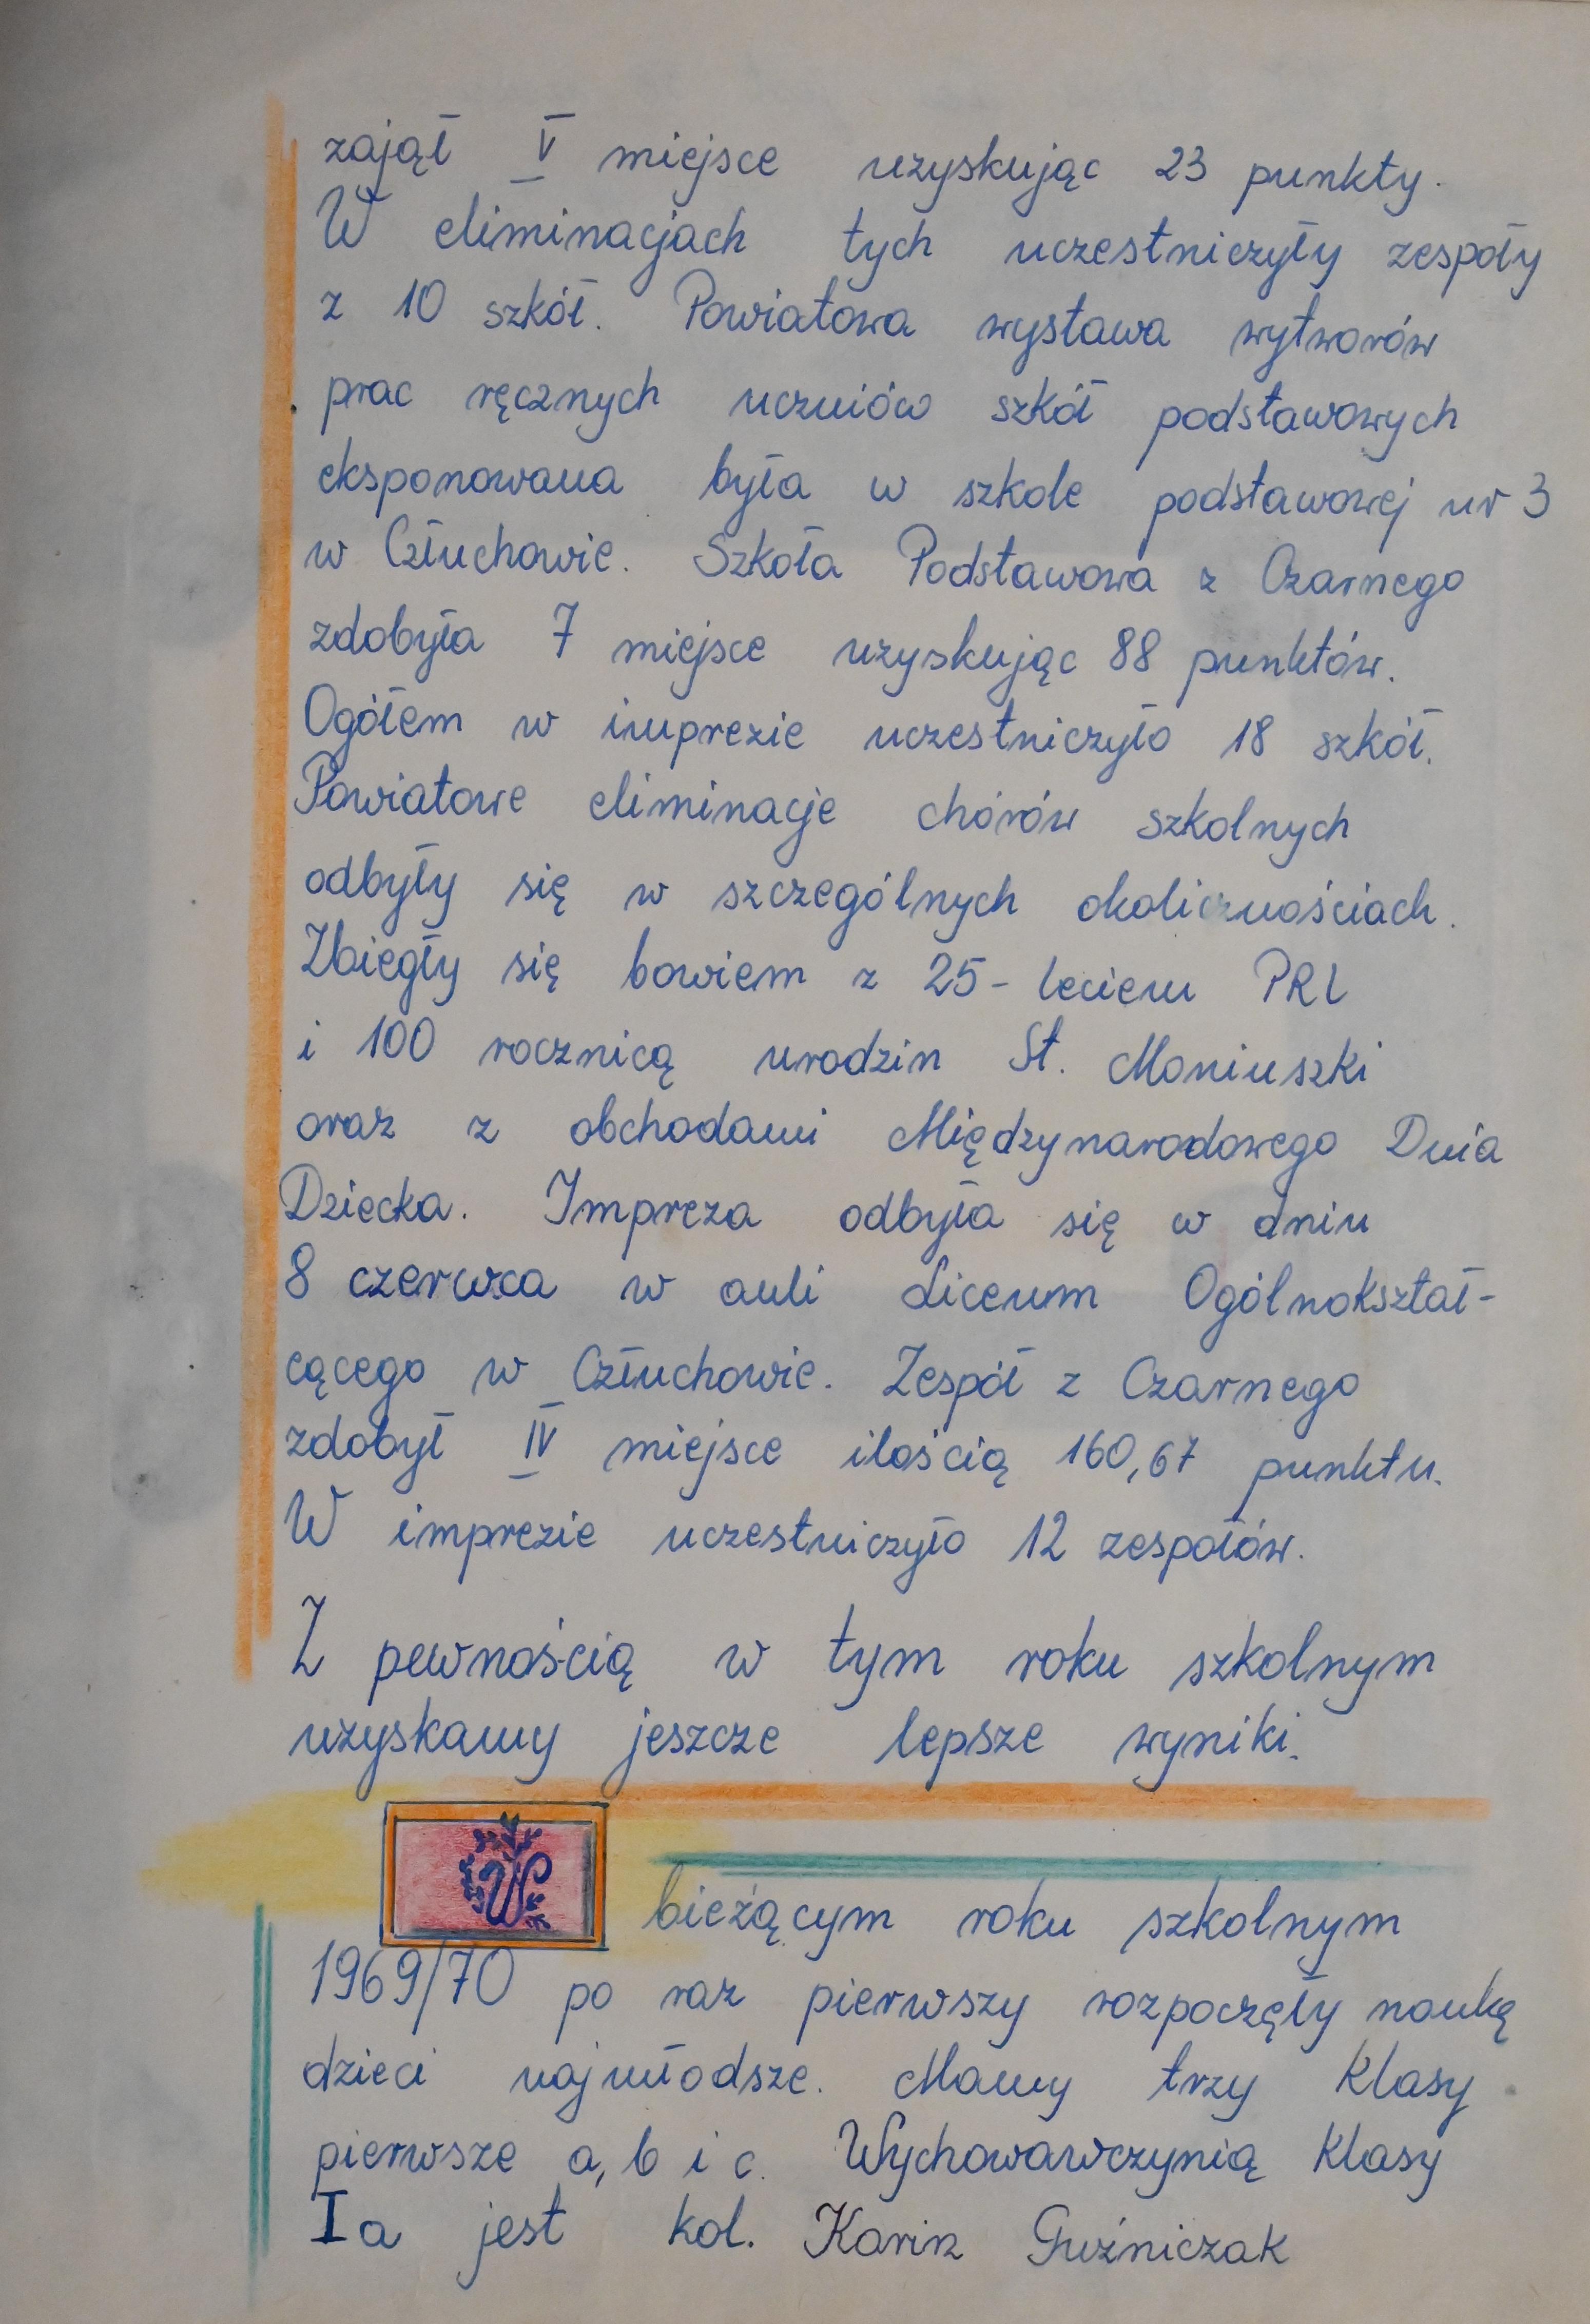 zajął V miejsce uzyskując 23 punkty.
W eliminacjach tych uczestniczyły zespoły
z 10 szkół. Powiatowa wystawa wytworów
prac ręcznych uczniów szkół podstawowych
eksponowana była w szkole podstawowej nr 3
w Człuchowie. Szkoła Podstawowa z Czarnego
zdobyła 7 miejsce uzyskując 88 punktów.
Ogółem w imprezie uczestniczyło 18 szkół.
Powiatowe eliminacje chórów szkolnych
odbyły się w szczególnych okolicznościach.
Zbiegły się bowiem z 25-leciem PRL
i 100 rocznicą urodzin St. Moniuszki
oraz z obchodami Międzynarodowego Dnia
Dziecka. Impreza odbyła się w dniu
8 czerwca w auli Liceum Ogólnokształ-
cącego w Człuchowie. Zespół z Czarnego
zdobył IV miejsce ilością 160,67 punktu.
W imprezie uczestniczyło 12 zespołów.
Z pewnością w tym roku szkolnym
uzyskamy jeszcze lepsze wyniki.
W bieżącym roku szkolnym
1969/70 po raz pierwszy rozpoczęły naukę
dzieci najmłodsze. Mamy trzy klasy
pierwsze a, b i c. Wychowawczynią klasy
Ia jest kol. Karin Guźniczak